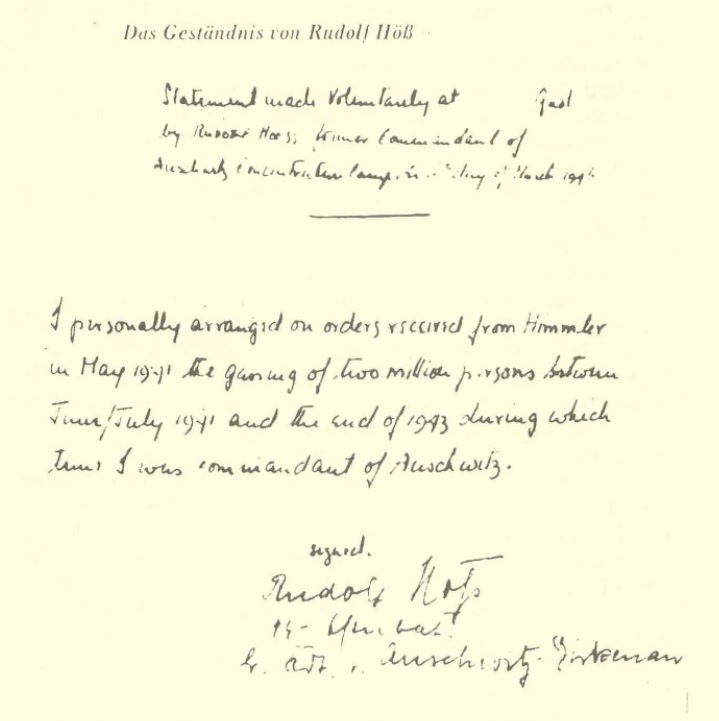 Das Geständnis von Rudolf Höß
Statement made voluntarily at Gaol
by Rudolf Hoess former Commandant of
Auschwitz Concentration Camp day of March 1946
I personally arranged on orders received from Himmler
in May 1941 the gassing of two million persons between
June/July 1941 and the end of 1943 during which
time I was commandant of Auschwitz.
signed.
Rudolf Höß
Auschwitz-Birkenau